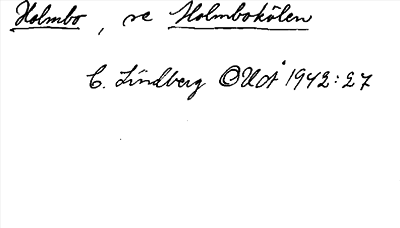 Holmbo, se Holmbokölen
C. Lindberg OUÅ 1942:27